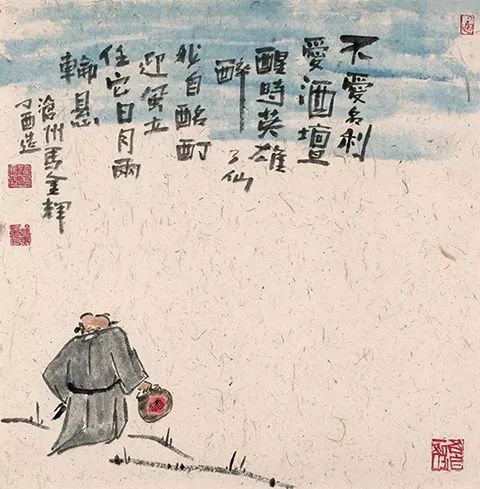 不愛名利
愛酒壇
醒時英雄
醉 仙
我自酩酊
迎風立
任它日月兩
輪懸
滄州馬金輝
丁酉造